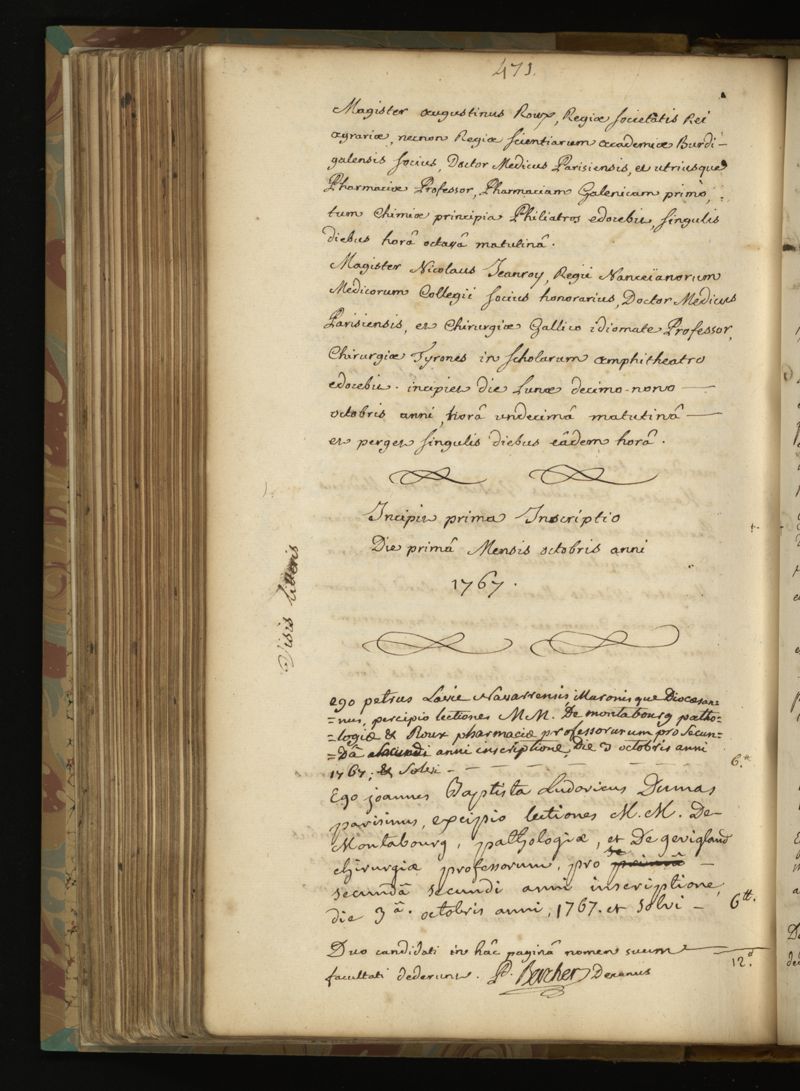 471.
Magister Augustinus Roux, Regiæ societatis Rei
Agrariæ, necnon Regiæ scientiarum Academiæ Burdi-
galensis socius, Doctor Medicus Parisiensis, et utriusque
Pharmaciæ Professor, Pharmaciam Galenicam primò,
tum Chimiæ principia Philiatros edocebit, singulis
diebus horâ octavâ matutinâ.
Magister Nicolaus Jeanroy, Regii Nanceïanorum
Medicorum Collegii socius honorarius, Doctor Medicus
Parisiensis, et Chirurgiæ Gallico idiomate Professor,
Chirurgiæ Tyrones in scholarum amphitheatro
edocebit. incipiet die Lunæ decimo-nono —
octobris anni, horâ undecimâ matutinâ —
et perget singulis diebus eâdem horâ.
Incipit prima Inscriptio
Die primâ Mensis octobris anni
1767.
Visis litteris
ego petrus Lavie Navarrensis Maronisque Diocesan=
=nus, percipio lectiones M M. De montabourg patho=
=logiæ & Roux pharmaciæ professorum pro secun=
=Dâ secundi anni inscriptione, Die 3 octobris anni
1767; & Solvi - - - - - - 6.tt
Ego joannes Baptista Ludovicus Dumas
parisinus, excipio lectiones M. M. De
Montabourg, pathologiæ, et De gevigland
chirurgiæ professorum, pro —
secundâ secundi anni inscriptione,
die 3â. octobris anni, 1767. et solvi - 6tt.
Duo candidati in hâc paginâ nomen suum
facultati dederunt. P. Bercher Decanus 12.d